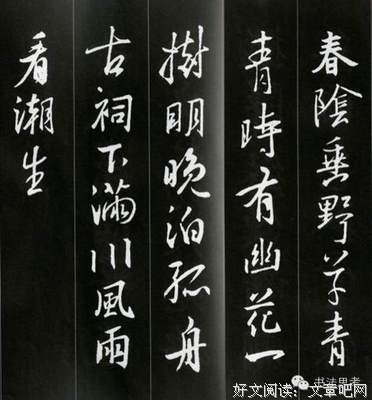 春陰垂野草青
青時有幽花一
樹明晚泊孤舟
古祠下滿川風雨
看潮生
书法思考
好文阅读：文章吧网